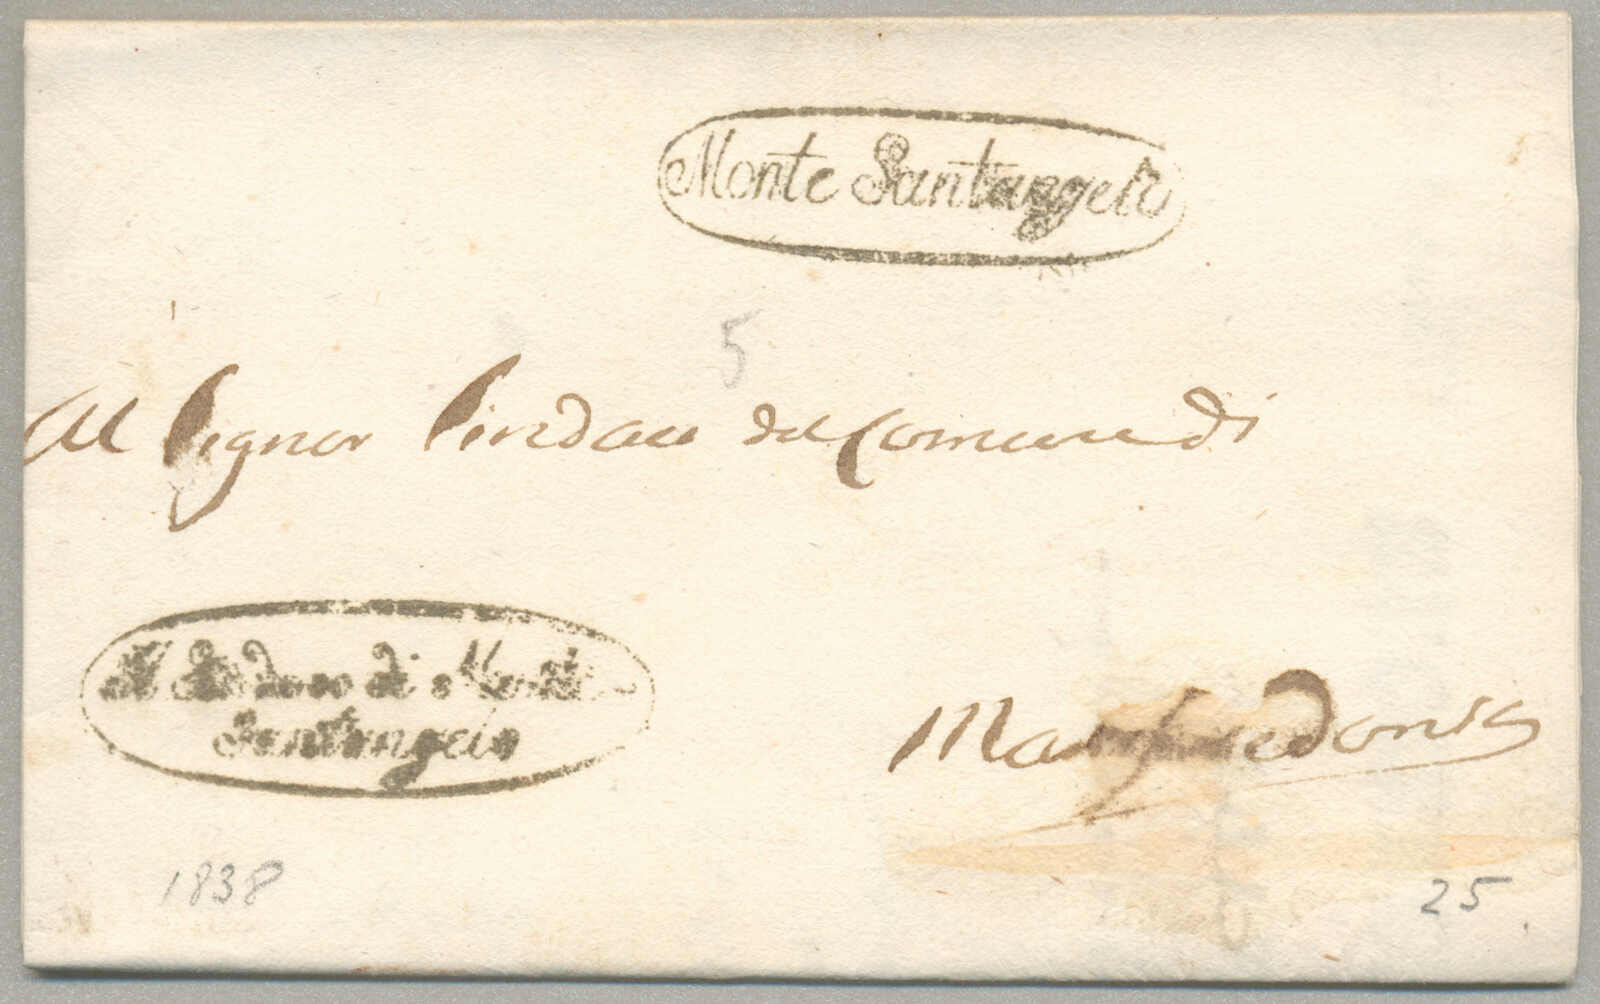 Monte Santangelo
5
Al Signor Sindaco del Comune di
Il Sindaco di Monte
Santangelo
Manfredonia
1838
25